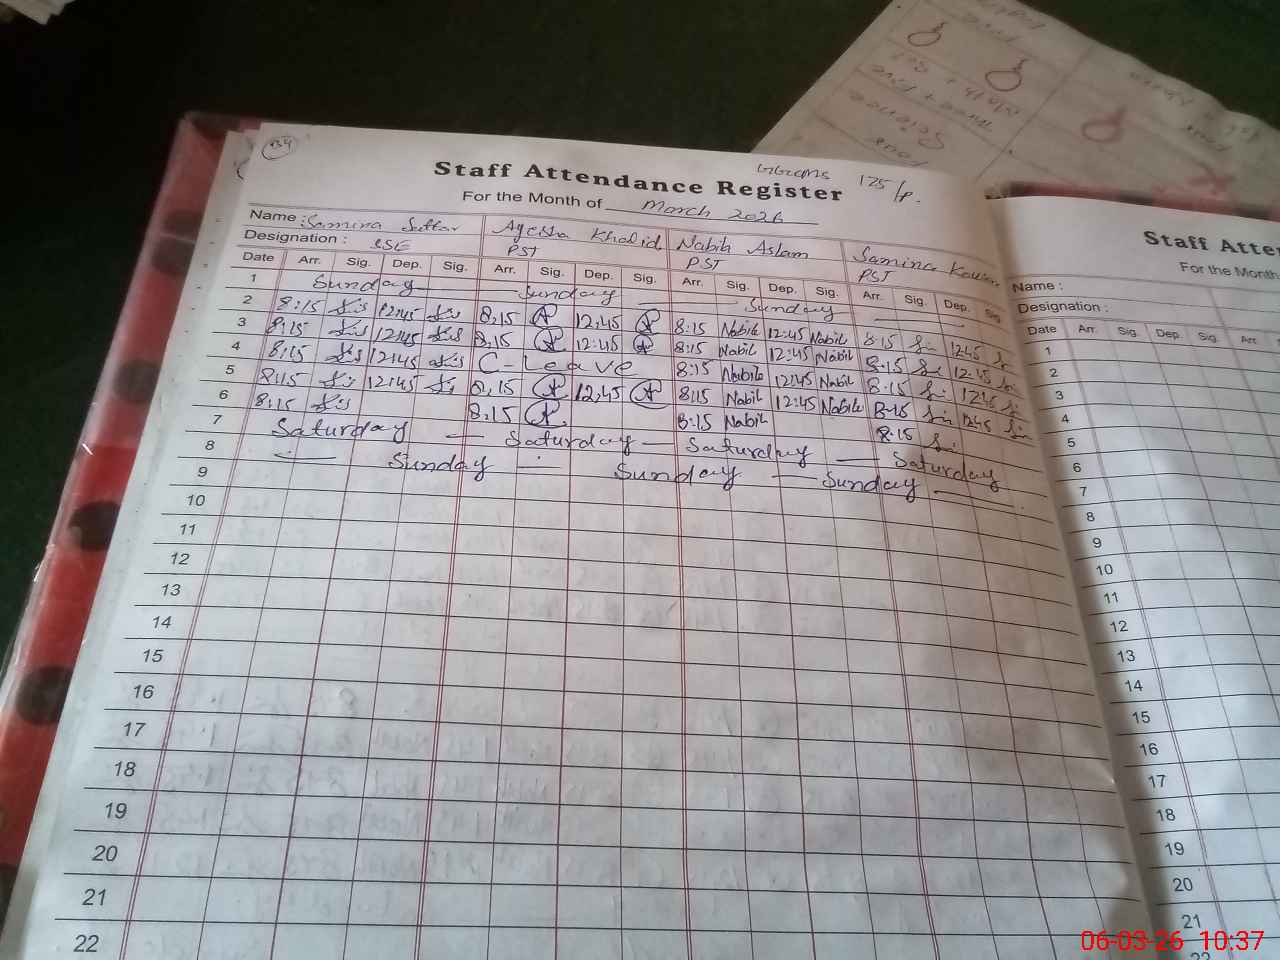 134
Staff Attendance Register
GGCMS 125/P.
For the Month of March 2026
Name : Samina Sattar Ayesha Khalid Nabila Aslam Samina Kousar
Designation : ESE PST PST PST
Date Arr. Sig. Dep. Sig. Arr. Sig. Dep. Sig. Arr. Sig. Dep. Sig. Arr. Sig. Dep. Sig.
1 Sunday Sunday Sunday
2 8:15 12:45 8,15 12,45 8:15 Nabila 12:45 Nabila 8:15 12:45
3 8:15 12:45 8,15 12:45 8:15 Nabil 12:45 Nabil 8:15 12:45
4 8:15 12:45 C-Leave 8:15 Nabila 12:45 Nabil 8:15 12:45
5 8:15 12:45 8,15 12,45 8:15 Nabil 12:45 Nabila 8:15 12:45
6 8:15 8,15 8:15 Nabil 8:15
7 Saturday — Saturday — Saturday — Saturday
8 Sunday Sunday Sunday
9
10
11
12
13
14
15
16
17
18
19
20
21
22
Staff Atte
For the Month
Name :
Designation :
Date Arr. Sig. Dep. Sig. Arr.
1
2
3
4
5
6
7
8
9
10
11
12
13
14
15
16
17
18
19
20
21
22
Four
Science
Three + Five
06-03-26 10:37